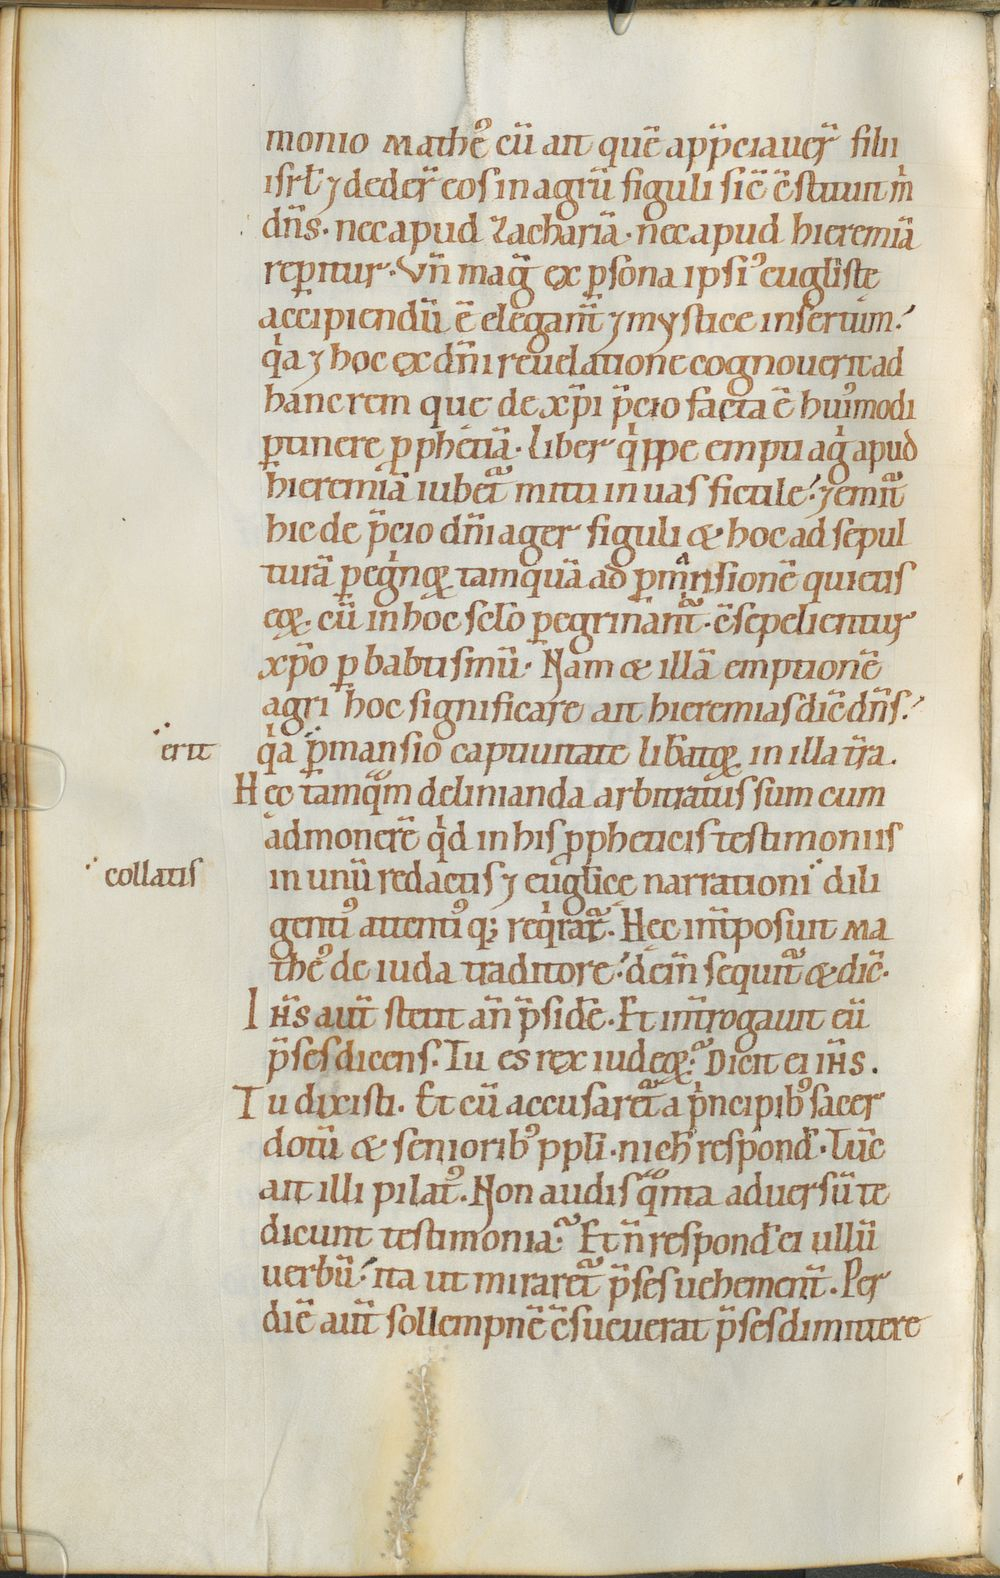 monio math&#x113;ꝰ cū ait quē app̄ciauer̄ filii
isrl̄ ⁊ deder̄ eos in agrū figuli sic̄ ēstituit m̄
dn̄s. nec apud Zachariā. nec apud hieremiā
rep̄itur. Vn̄ mag̅ ex p̱sona ipsiꝰ euglīste
accipiendū ē elegant̄ ⁊ mystice insertum.
qͥa ⁊ hoc ex dn̄i reuelatione cognouerit ad
hanc rem que de xp̄i p̄cio facta ē huiꝰmodi
ꝑtinere ꝓphetiā. Liber qͥppe empti agͥ apud
hieremiā iubet᷑ mitti in uas fictile. ⁊ emit᷑
hic de p̄cio dn̄i ager figuli & hoc ad sepul
turā ꝑegͥnoꝝ tamquā ad ꝑmansionē quietis
eoꝝ. cū in hoc sclo ꝑegrinant᷑. c̄sepelientur
xp̄o ꝑ babtismū. Nam & illā emptionē
agri hoc significare ait hieremias dic̄ dn̄s.
erit qͥa ꝑmansio captiuitate lib̄atoꝝ in illa tr̄a.
Hec tamqͦm delinianda arbitratus sum cum
admonerē qͥd in his ꝓpheticis testimoniis
collatis in unū redactis ⁊ euglīce narrationi dili
gentiꝰ attentiꝰ q; reqͥrat᷑. Hec int̄posuit Ma
theꝰ de iuda traditore. dein̄ sequit᷑ & dic̄.
Ih̄s aut̄ stetit an̄ p̄sidē. Et int̄rogauit eū
p̄ses dicens. Tu es rex iudeoꝝ. Dicit ei ih̄s.
Tu dixisti. Et cū accusaret᷑ a pͥncipibꝰ sacer
dotū & senioribꝰ ppli. nich̄ respond̄. Tūc
ait illi pilatꝰ. Non audis qͣnta aduersū te
dicunt testimonia. Et n̄ respond̄ ei ullū
uerbū. ita ut miraret᷑ p̄ses uehement̄. Per
diē aut̄ sollempnē c̄sueuerat p̄ses dimittere